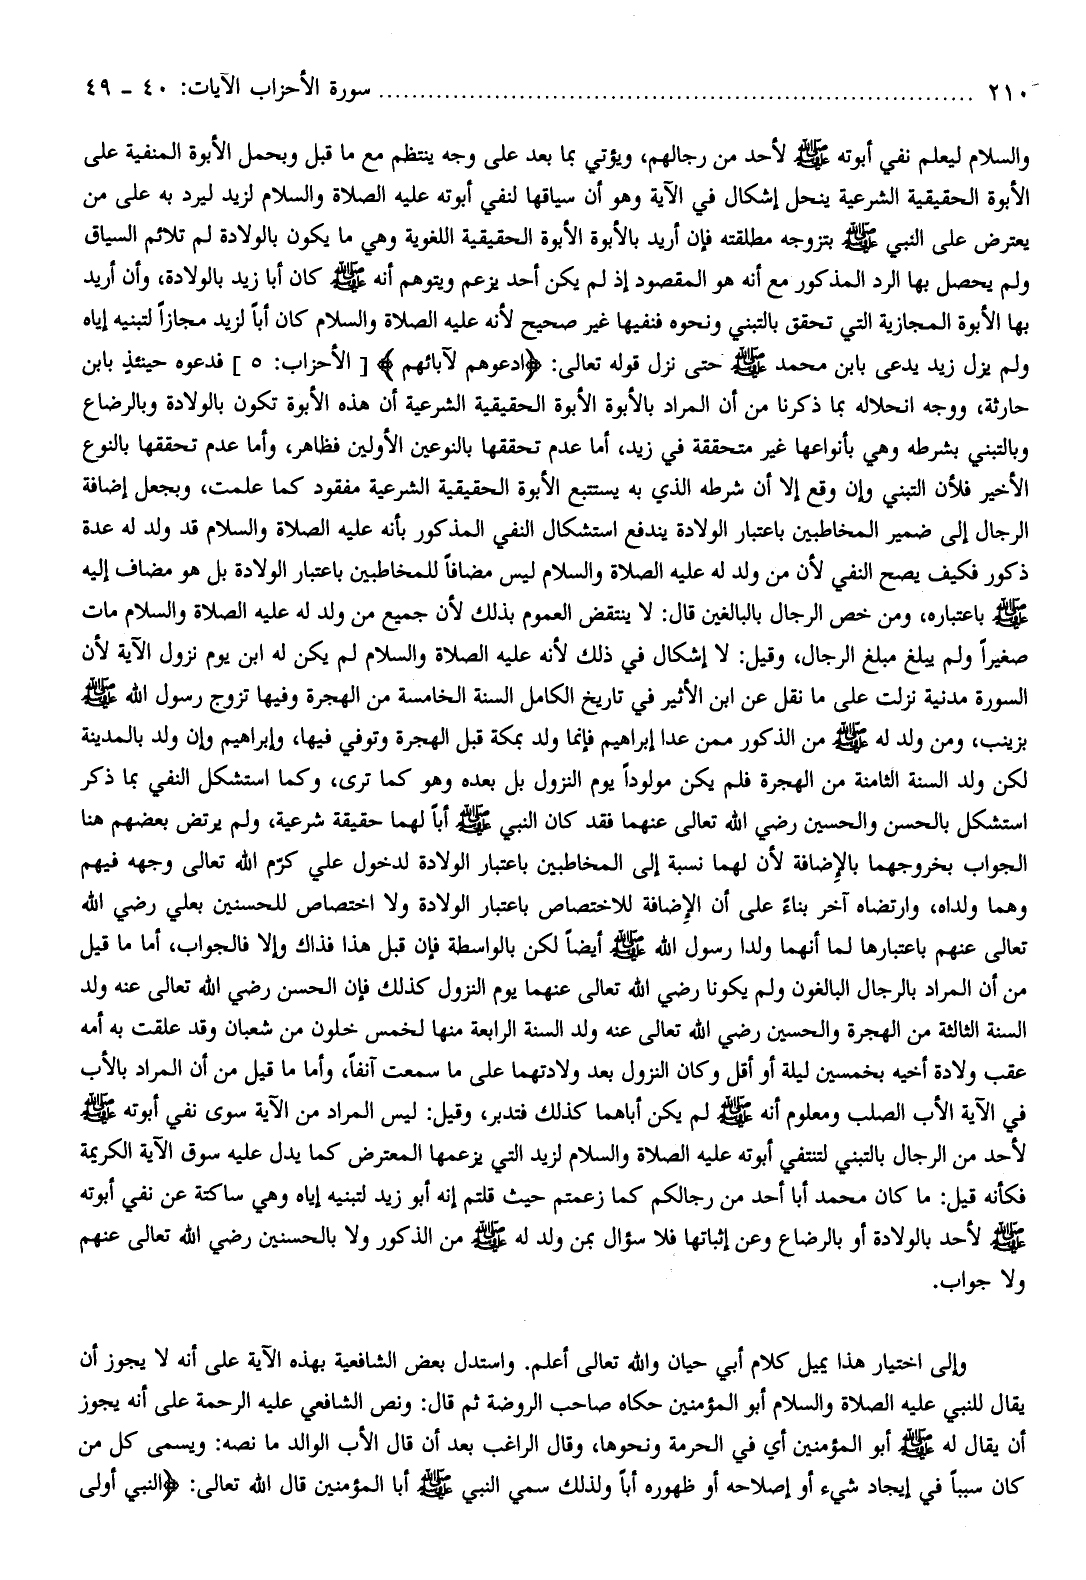 ٢١٠ ........................................................................ سورة الأحزاب الآيات: ٤٠ - ٤٩
والسلام ليعلم نفي أبوته ﷺ لأحد من رجالهم، ويؤتي بما بعد على وجه ينتظم مع ما قبل وبحمل الأبوة المنفية على
الأبوة الحقيقية الشرعية ينحل إشكال في الآية وهو أن سياقها لنفي أبوته عليه الصلاة والسلام لزيد ليرد به على من
يعترض على النبي ﷺ بتزوجه مطلقته فإن أريد بالأبوة الأبوة الحقيقية اللغوية وهي ما يكون بالولادة لم تلائم السياق
ولم يحصل بها الرد المذكور مع أنه هو المقصود إذ لم يكن أحد يزعم ويتوهم أنه ﷺ كان أبا زيد بالولادة، وأن أريد
بها الأبوة المجازية التي تحقق بالتبني ونحوه فنفيها غير صحيح لأنه عليه الصلاة والسلام كان أباً لزيد مجازاً لتبنيه إياه
ولم يزل زيد يدعى بابن محمد ﷺ حتى نزل قوله تعالى: ﴿ادعوهم لآبائهم﴾ [ الأحزاب: ٥ ] فدعوه حينئذٍ بابن
حارثة، ووجه انحلاله بما ذكرنا من أن المراد بالأبوة الأبوة الحقيقية الشرعية أن هذه الأبوة تكون بالولادة وبالرضاع
وبالتبني بشرطه وهي بأنواعها غير متحققة في زيد، أما عدم تحققها بالنوعين الأولين فظاهر، وأما عدم تحققها بالنوع
الأخير فلأن التبني وإن وقع إلا أن شرطه الذي به يستتبع الأبوة الحقيقية الشرعية مفقود كما علمت، وبجعل إضافة
الرجال إلى ضمير المخاطبين باعتبار الولادة يندفع استشكال النفي المذكور بأنه عليه الصلاة والسلام قد ولد له عدة
ذكور فكيف يصح النفي لأن من ولد له عليه الصلاة والسلام ليس مضافاً للمخاطبين باعتبار الولادة بل هو مضاف إليه
ﷺ باعتباره، ومن خص الرجال بالبالغين قال: لا ينتقض العموم بذلك لأن جميع من ولد له عليه الصلاة والسلام مات
صغيراً ولم يبلغ مبلغ الرجال، وقيل: لا إشكال في ذلك لأنه عليه الصلاة والسلام لم يكن له ابن يوم نزول الآية لأن
السورة مدنية نزلت على ما نقل عن ابن الأثير في تاريخ الكامل السنة الخامسة من الهجرة وفيها تزوج رسول الله ﷺ
بزينب، ومن ولد له ﷺ من الذكور ممن عدا إبراهيم فإنما ولد بمكة قبل الهجرة وتوفي فيها، وإبراهيم وإن ولد بالمدينة
لكن ولد السنة الثامنة من الهجرة فلم يكن مولوداً يوم النزول بل بعده وهو كما ترى، وكما استشكل النفي بما ذكر
استشكل بالحسن والحسين رضي الله تعالى عنهما فقد كان النبي ﷺ أباً لهما حقيقة شرعية، ولم يرتض بعضهم هنا
الجواب بخروجهما بالإِضافة لأن لهما نسبة إلى المخاطبين باعتبار الولادة لدخول علي كرّم الله تعالى وجهه فيهم
وهما ولداه، وارتضاه آخر بناءً على أن الإِضافة للاختصاص باعتبار الولادة ولا اختصاص للحسنين بعلي رضي الله
تعالى عنهم باعتبارها لما أنهما ولدا رسول الله ﷺ أيضاً لكن بالواسطة فإن قبل هذا فذاك وإلا فالجواب، أما ما قيل
من أن المراد بالرجال البالغون ولم يكونا رضي الله تعالى عنهما يوم النزول كذلك فإن الحسن رضي الله تعالى عنه ولد
السنة الثالثة من الهجرة والحسين رضي الله تعالى عنه ولد السنة الرابعة منها لخمس خلون من شعبان وقد علقت به أمه
عقب ولادة أخيه بخمسين ليلة أو أقل وكان النزول بعد ولادتهما على ما سمعت آنفاً، وأما ما قيل من أن المراد بالأب
في الآية الأب الصلب ومعلوم أنه ﷺ لم يكن أباهما كذلك فتدبر، وقيل: ليس المراد من الآية سوى نفي أبوته ﷺ
لأحد من الرجال بالتبني لتنتفي أبوته عليه الصلاة والسلام لزيد التي يزعمها المعترض كما يدل عليه سوق الآية الكريمة
فكأنه قيل: ما كان محمد أبا أحد من رجالكم كما زعمتم حيث قلتم إنه أبو زيد لتبنيه إياه وهي ساكتة عن نفي أبوته
ﷺ لأحد بالولادة أو بالرضاع وعن إثباتها فلا سؤال بمن ولد له ﷺ من الذكور ولا بالحسنين رضي الله تعالى عنهم
ولا جواب.
وإلى اختيار هذا يميل كلام أبي حيان والله تعالى أعلم. واستدل بعض الشافعية بهذه الآية على أنه لا يجوز أن
يقال للنبي عليه الصلاة والسلام أبو المؤمنين حكاه صاحب الروضة ثم قال: ونص الشافعي عليه الرحمة على أنه يجوز
أن يقال له ﷺ أبو المؤمنين أي في الحرمة ونحوها، وقال الراغب بعد أن قال الأب الوالد ما نصه: ويسمى كل من
كان سبباً في إيجاد شيء أو إصلاحه أو ظهوره أباً ولذلك سمي النبي ﷺ أبا المؤمنين قال الله تعالى: ﴿النبي أولى